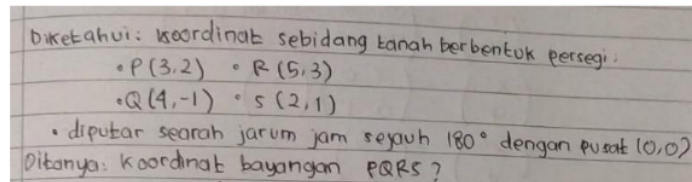 Diketahui: koordinat sebidang tanah berbentuk persegi.
• P (3.2) • R (5,3)
• Q (4,-1) • S (2,1)
• diputar searah jarum jam sejauh 180° dengan pusat (0,0)
Ditanya: Koordinat bayangan PQRS?